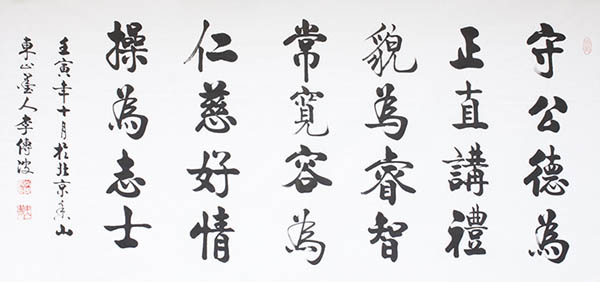 守公德為
正直講禮
貌為睿智
常寬容為
仁慈好情
操為志士
壬寅年十月於北京景山
東山墨人李傳波